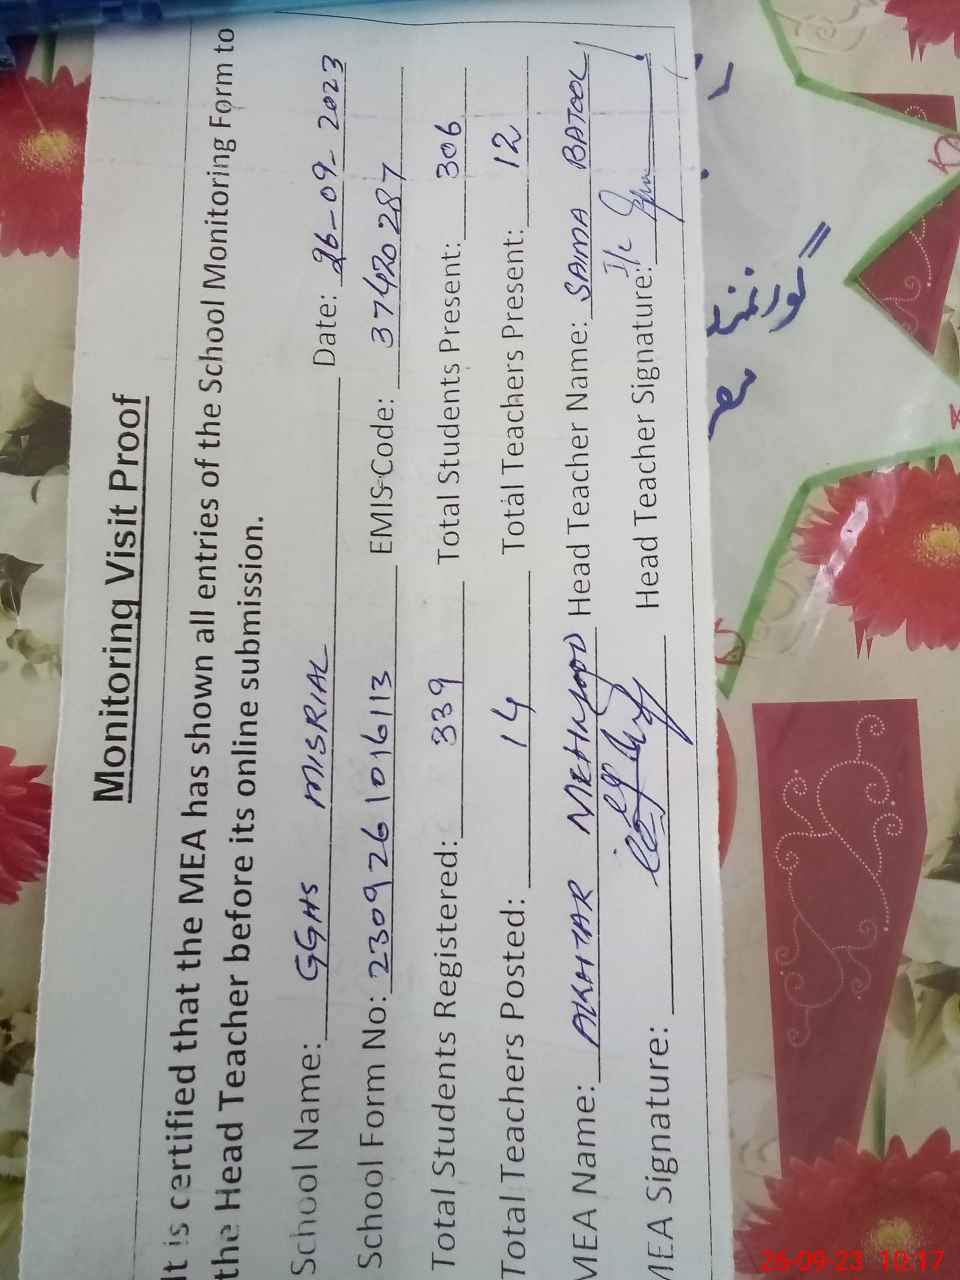 Monitoring Visit Proof
It is certified that the MEA has shown all entries of the School Monitoring Form to
the Head Teacher before its online submission.
School Name: GGHS MISRIAL Date: 26-09-2023
School Form No: 2309261016113 EMIS Code: 37420287
Total Students Registered: 339 Total Students Present: 306
Total Teachers Posted: 14 Total Teachers Present: 12
MEA Name: AKHTAR MEHMOOD Head Teacher Name: SAIMA BATOOL
MEA Signature: Head Teacher Signature: I/c
گورنمنٹ
26-09-23 10:17